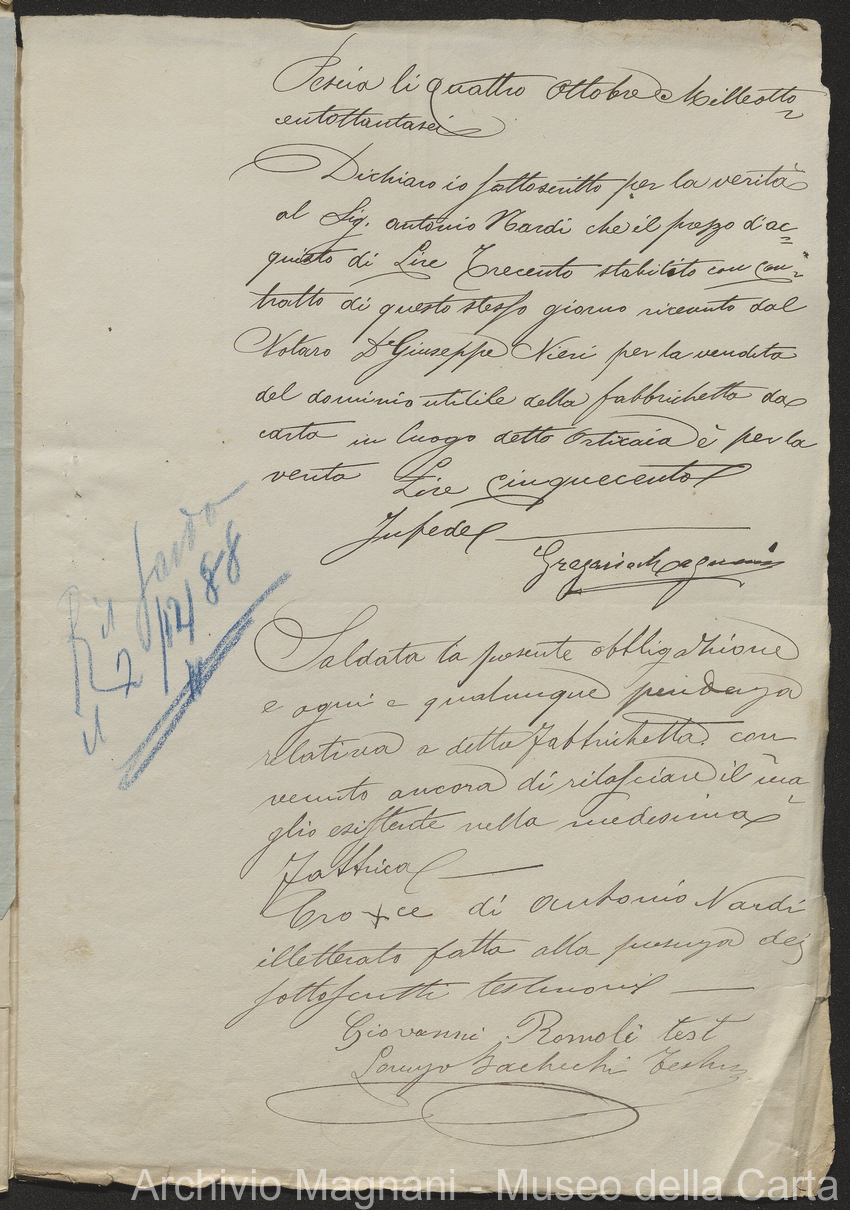 Pescia li quattro Ottobre Milleotto=
centottantasei
Dichiaro io sottoscritto per la verità
al Sig. Antonio Nardi che il prezzo d'ac=
quisto di Lire Trecento stabilito con con=
tratto di questo stesso giorno ricevuto dal
Notaro Dr Giuseppe Nieri per la vendita
del dominio utilile della fabbrichetta da
carta in luogo detto Orticaia è per la
verità Lire Cinquecento
In fede
Gregorio Magnani
Saldata la presente obbligazione
e ogni e qualunque pendenza
relativa a detta fabbrichetta. con
venuto ancora di rilasciare il ma=
glio esistente nella medesima
fabbrica
Cro+ce di Antonio Nardi
illetterato fatta alla presenza dei
sottoscritti testimoni
Giovanni Romoli test
Lorenzo Bachechi Testim=
il
2/12/88
il
Archivio Magnani - Museo della Carta